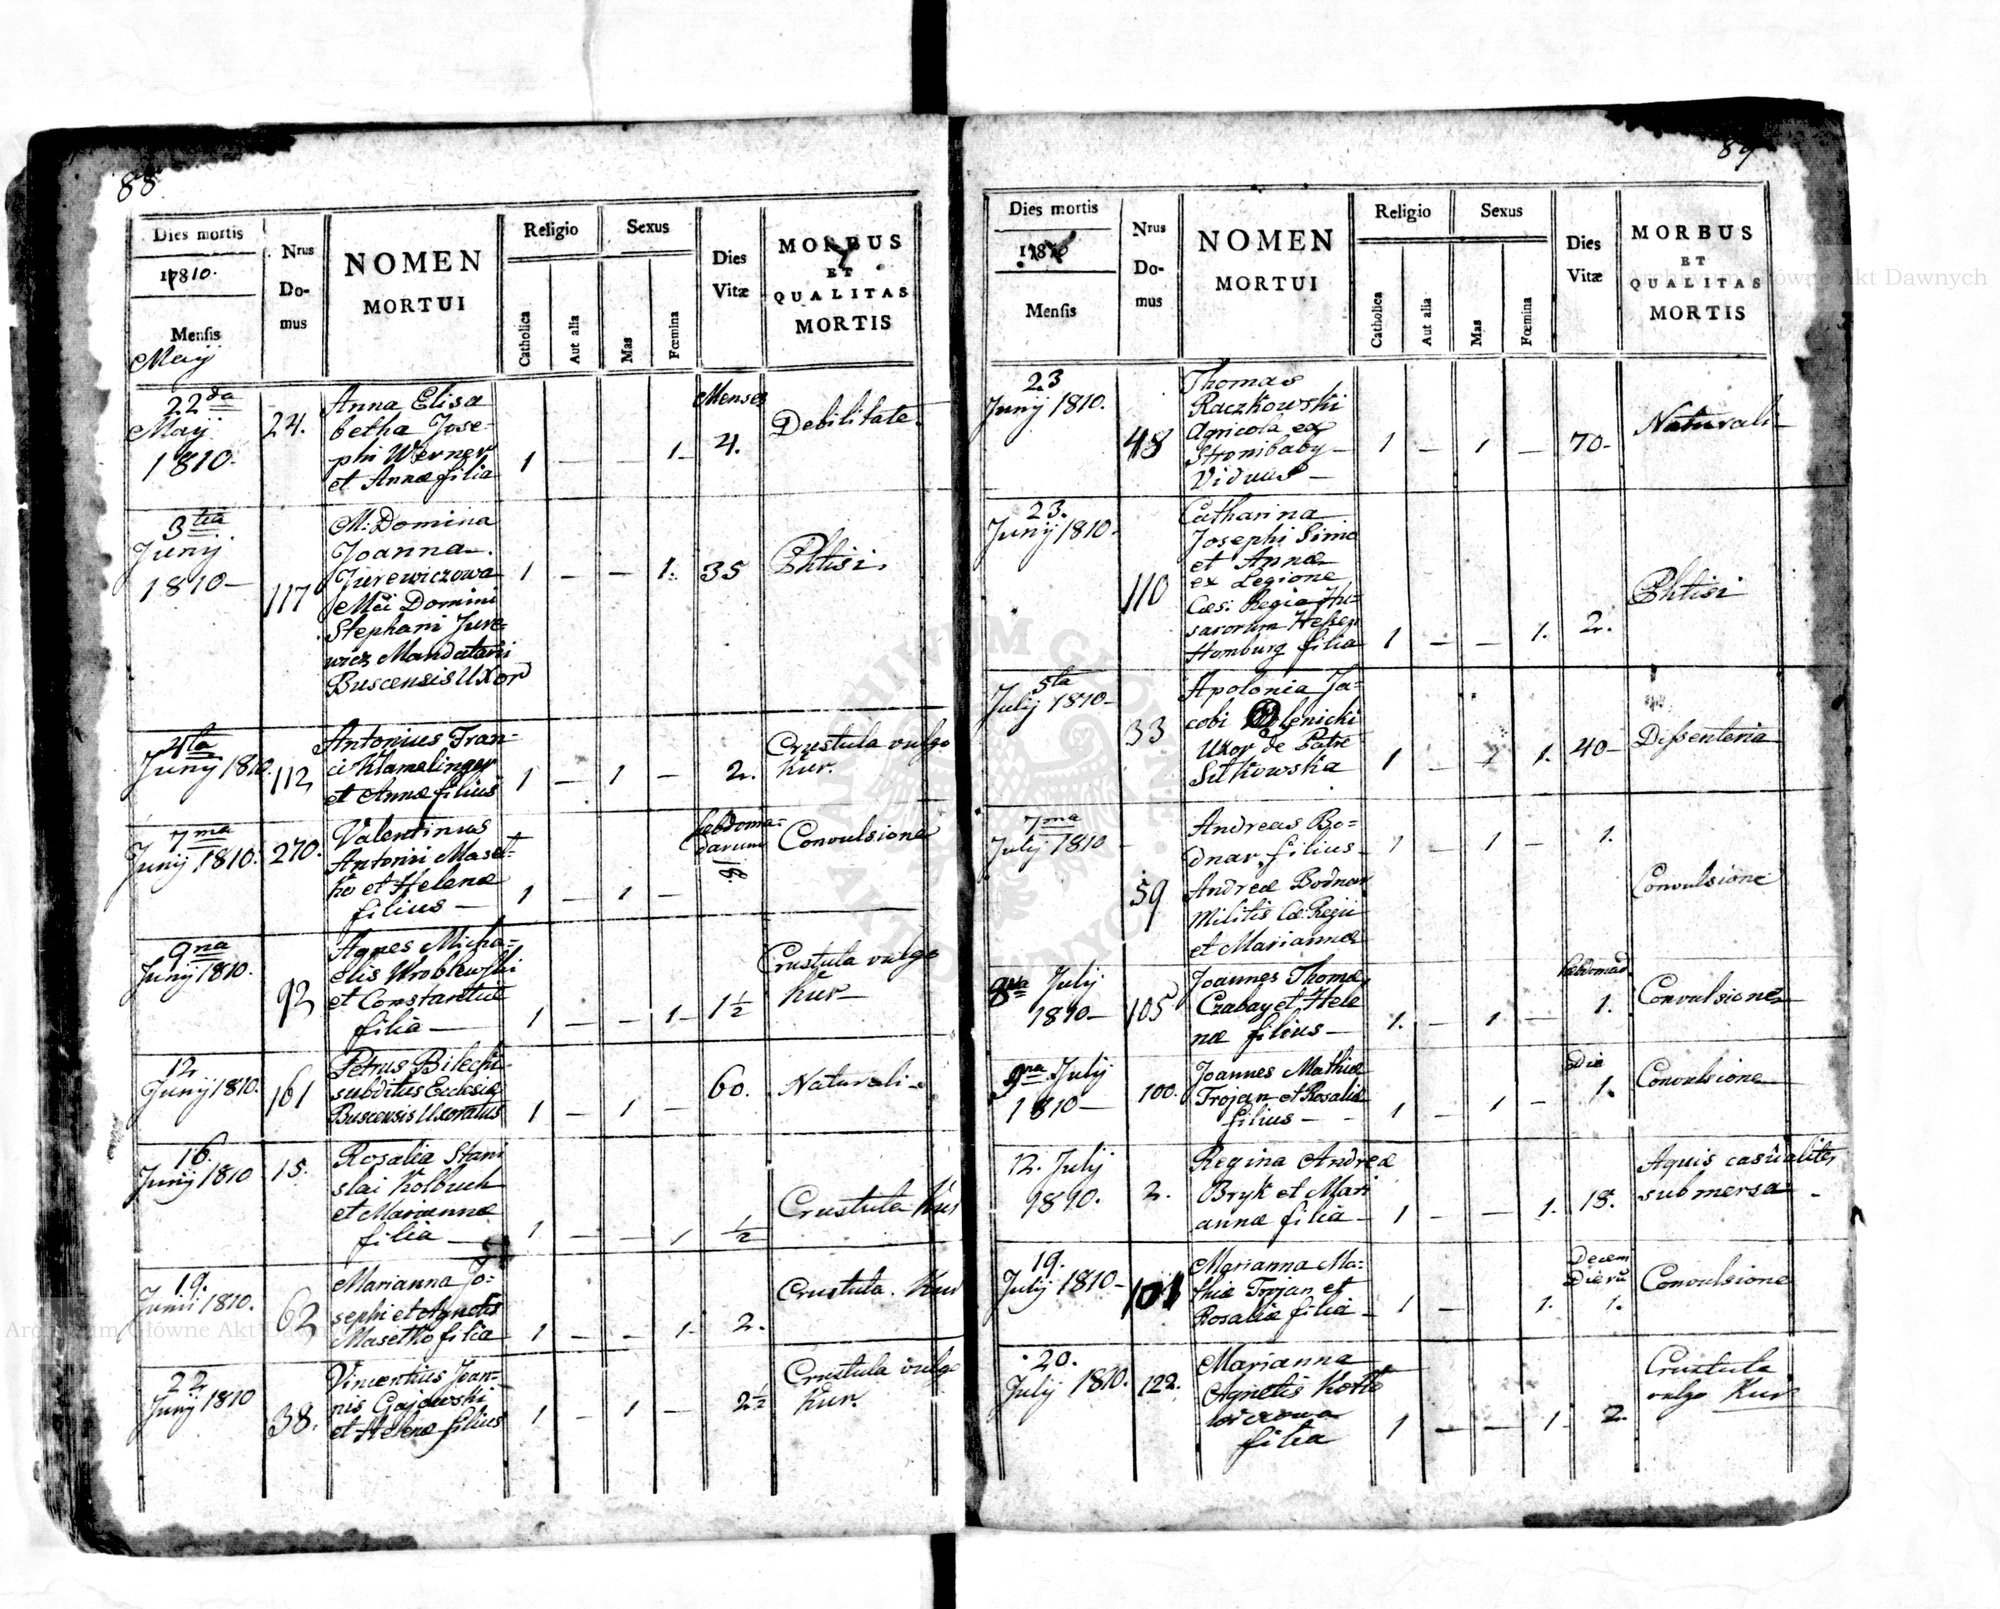 88
Dies mortis
1810.
Mensis
Maij
Nrus
Do-
mus
NOMEN
MORTUI
Religio
Catholica
Aut alia
Sexus
Mas
Fœmina
Dies
Vitæ
MORBUS
ET
QUALITAS
MORTIS
22da
Maij
1810.
24.
Anna Elisa
betha Jose-
phi Werner
et Annæ filia
1 — — 1
Menses
4.
Debilitate.
3tia
Junij
1810—
117
M: Domina
Joanna
Jurewiczowa
Mci Domini
Stephani Jure-
wicz Mandatarii
Buscensis Uxor
1 — — 1.
35
Phtisi.
4ta
Junij 1810.
112
Antonius Fran-
ci Klamelinger
et Annæ filius
1 — 1 —
2.
Crustula vulgo
Kur.
7ma
Junij 1810.
270.
Valentinus
Antonii Maset-
ko et Helenæ
filius —
1 — 1 —
hebdoma-
darum
Convulsione
9na
Junij 1810.
92
Agnes Micha-
elis Wroblewski
et Constantiæ
filia —
1 — — 1
1½
Crustula vulgo
Kur—
12
Junij 1810.
161
Petrus Bilecki
subditus Ecclesiæ
Buscensis Uxoratus
1 — 1 —
60.
Naturali—
16.
Junij 1810
15.
Rosalia Stani
slai Kolbuch
et Mariannæ
filia —
1 — — 1
½
Crustula Kur
19.
Junij 1810.
62
Marianna Jo-
sephi et Agnetis
Masetko filia
1 — — 1
2.
Crustula. Kur
22
Junij 1810
38.
Vincentius Joan-
nis Gajowski
et Helenæ filius
1 — 1 —
2½
Crustula vulgo
Kur.
89
Dies mortis
1810
Mensis
Nrus
Do-
mus
NOMEN
MORTUI
Religio
Catholica
Aut alia
Sexus
Mas
Fœmina
Dies
Vitæ
MORBUS
ET
QUALITAS
MORTIS
23
Junij 1810.
48
Thomas
Raczkowski
Agricola ex
Stronibaby
Viduus —
1 — 1 —
70
Naturali
23.
Junij 1810
110
Catharina
Josephi Simo
et Annæ
ex Legione
Cæs: Regia Hu-
sarorum Hessen
Homburg filia
1 — — 1.
2.
Phtisi
5ta
Julij 1810
33
Apolonia Ja-
cobi
Uxor de Patre
Sitkowska
1 — 1.
40
Dissenteria
7ma
Julij 1810
59
Andreas Bo-
dnar, filius
Andreæ Bodnar
Militis Cæ: Regii
et Mariannæ
1 — 1 —
1.
Convulsione
8va Julij
1810—
105
Joannes Thomæ
Czabay et Hele
næ filius —
1. — 1 —
hebdomad.
1.
Convulsione
9na Julij
1810—
100.
Joannes Mathiæ
Trojan et Rosaliæ
filius —
1 — 1 —
Die
1.
Convulsione
12. Julij
1810.
2.
Regina Andreæ
Bryk et Mari
annæ filia
1 — — 1.
18.
Aquis casualiter
submersa
19.
Julij 1810
101
Marianna Ma-
thiæ Trojan et
Rosaliæ filia
1 — 1.
Decem
Dierū
1.
Convulsione
20.
Julij 1810.
122.
Marianna
Agnetis Kotto
wiczowa
filia
1 — — 1
2.
Crustula
vulgo Kur
Archiwum Główne Akt Dawnych
Archiwum Główne Akt Dawnych
ARCHIWUM GŁÓWNE AKT DAWNYCH